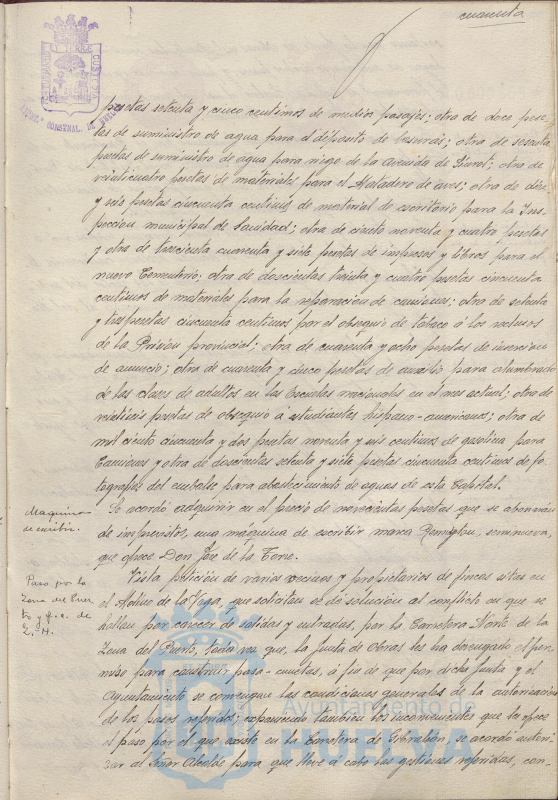 cuarenta
AYUNTAMIENTO
pesetas setenta y cinco centimos de medios pasajes; otra de doce pese-
tas de suministro de agua para el deposito de basuras; otra de sesenta
pesetas de suministro de agua para riego de la Avenida de ; otra de
veinticuatro pesetas de materiales para el Matadero de aves; otra de diez
y seis pesetas cincuenta centimos de material de escritorio para la Ins-
peccion municipal de Sanidad; otra de ciento noventa y cuatro pesetas
y otra de trescientas cuarenta y siete pesetas de impresos y libros para el
nuevo Cementerio; otra de doscientas treinta y cuatro pesetas cincuenta
centimos de materiales para la reparacion de camiones; otra de setenta
y tres pesetas cincuenta centimos por el obsequio de tabaco á los reclusos
de la Prision provincial; otra de cuarenta y ocho pesetas de insercion
de anuncio; otra de cuarenta y cinco pesetas de auxilio para alumbrado
de las clases de adultos en las Escuelas nacionales en el mes actual; otra de
veintiseis pesetas de obsequio á estudiantes hispano-americanos; otra de
mil ciento cincuenta y dos pesetas noventa y seis centimos de gasolina para
Camiones y otra de doscientas setenta y siete pesetas cincuenta centimos de fo-
tografias del embalse para abastecimiento de aguas de esta Capital.
Maquina
de escribir.
Se acordó adquirir en el precio de novecientas pesetas que se abonaran
de imprevistos, una máquina de escribir marca Remigton, seminueva,
que ofrece Don José de la Torre.
Paso por la
Zona del Puer-
to y f.c. de
Z.-H.
Vista peticion de varios vecinos y propietarios de fincas sitas en
el Molino de la Vega, que solicitan se dé solucion al conflicto en que se
hallan por carecer de salidas y entradas, por la Carretera Norte de la
Zona del Puerto, toda vez que, la Junta de Obras les ha denegado el per-
miso para construir pasa-cunetas, á fin de que por dicha Junta y el
Ayuntamiento se convengan las condiciones generales de la autorizacion
de los pasos referidos; exponiendo tambien los inconvenientes que les ofrece
el paso por el que existe en la Carretera de Gibraleon se acordó autori-
zar al Señor Alcalde para que lleve á cabo las gestiones referidas, con-
Ayuntamiento de
HUELVA